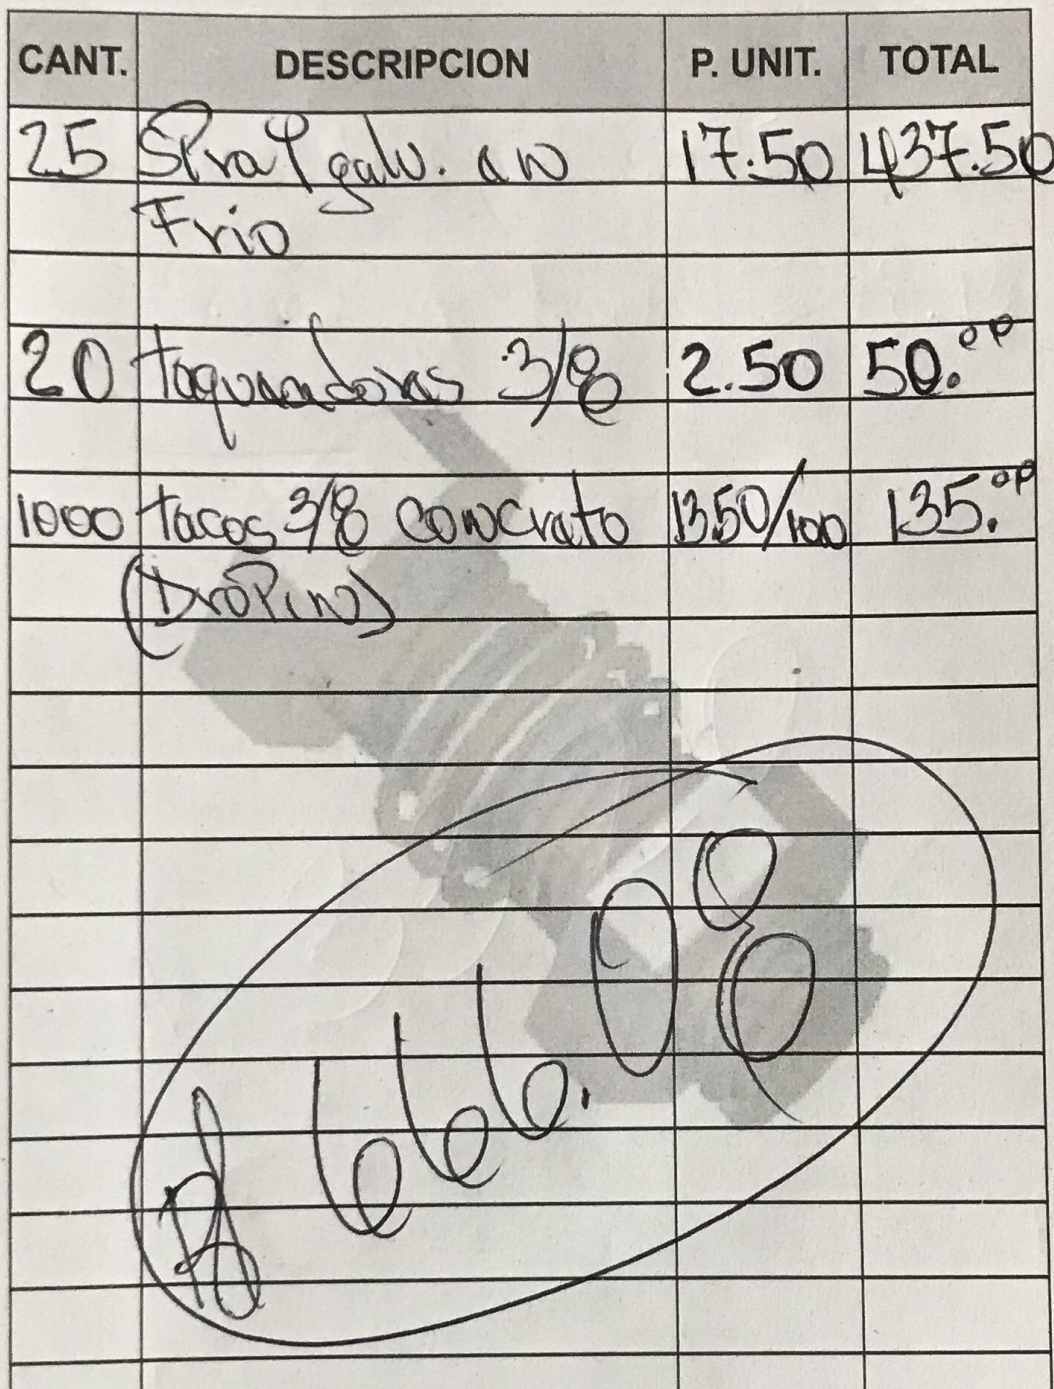 CANT. DESCRIPCION P. UNIT. TOTAL
25 SPray galv. en 17.50 437.50
Frio
20 taqueadoras 3/8 2.50 50.00
1000 tacos 3/8 concreto 13.50/100 135.00
(DroPin)
666.08